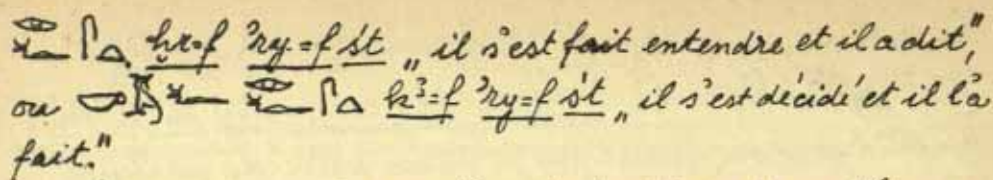 𓁹𓆑𓋴𓏏 ḫr=f ʾry=f śt „il s'est fait entendre et il a dit",
ou 𓎡𓄿𓆑 𓁹𓆑𓋴𓏏 k³=f ʾry=f śt „il s'est décidé et il l'a
fait."